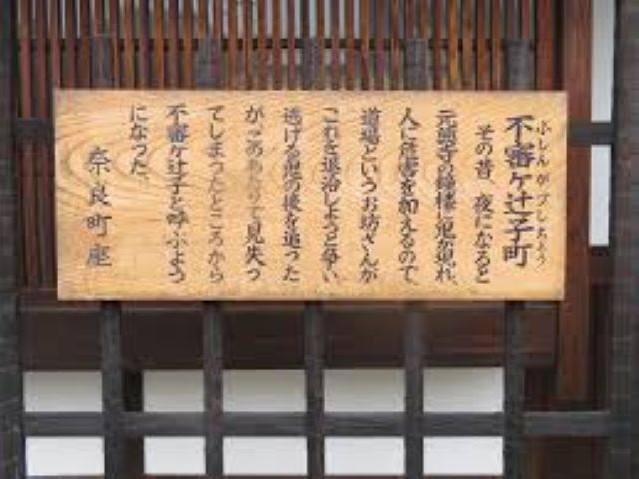 ふしんがづしちょう
不審ヶ辻子町
その昔、夜になると
元興寺の鐘楼に鬼が現れ、
人に危害を加えるので、
道場というお坊さんが
これを退治しようと争い、
逃げる鬼の後を追った
がこのあたりで見失っ
てしまったところから
不審ヶ辻子と呼ぶよう
になった。
奈良町座